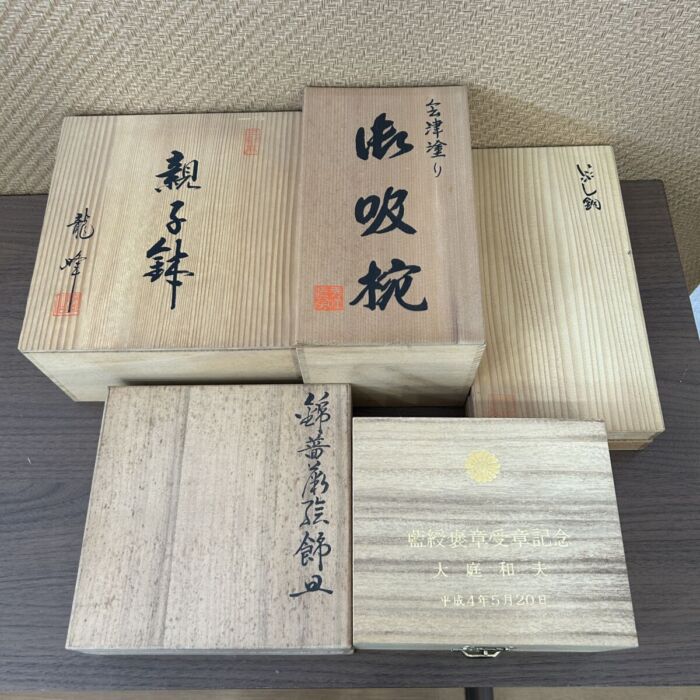 親子鉢
龍峰
会津塗り
御吸椀
いぶし銅
錦薔薇絵飾皿
藍綬褒章受章記念
大庭和夫
平成4年5月20日